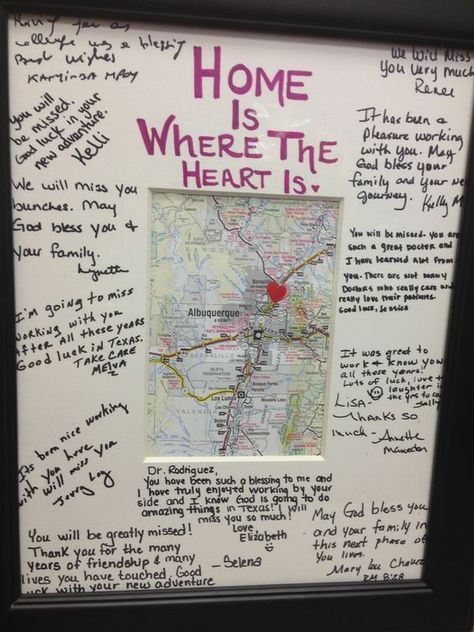 Having you as
colleague was a blessing
Best Wishes
You will
be missed.
Good luck in your
new adventure.
Kelli
We will miss you
bunches. May
God bless you &
your family.
Lynette
I'm going to miss
working with you
after all these years
Good luck in Texas.
TAKE CARE
MELVA
Its been nice working
with you here
with will miss you
You will be greatly missed!
Thank you for the many
years of friendship & many
lives you have touched. Good
luck with your new adventure
-Selena
HOME
IS
WHERE THE
HEART IS.
Albuquerque
BERNALILLO
Los Lunas
VALENCIA
Dr. Rodriguez,
You have been such a blessing to me and
I have truly enjoyed working by your
side and I know God is going to do
amazing things in Texas! I will
miss you so much!
Love
Elizabeth
We Will Miss
You Very much
Renee
It has been a
Pleasure working
with you. May
God bless your
family and your new
Journey. Kelly M
You will be missed. you are
such a great Doctor and
I have learned alot from
you. There are not many
Doctors who really care and
really love their patients.
Good luck, Jessica
It was great to
work & know you
all these years!
Lots of luck, love &
laughter in
the yrs to come
Sally
LISA-
Thanks so
much - Annette
May God bless you
and your family in
this next phase of
your lives.
Mary Lou